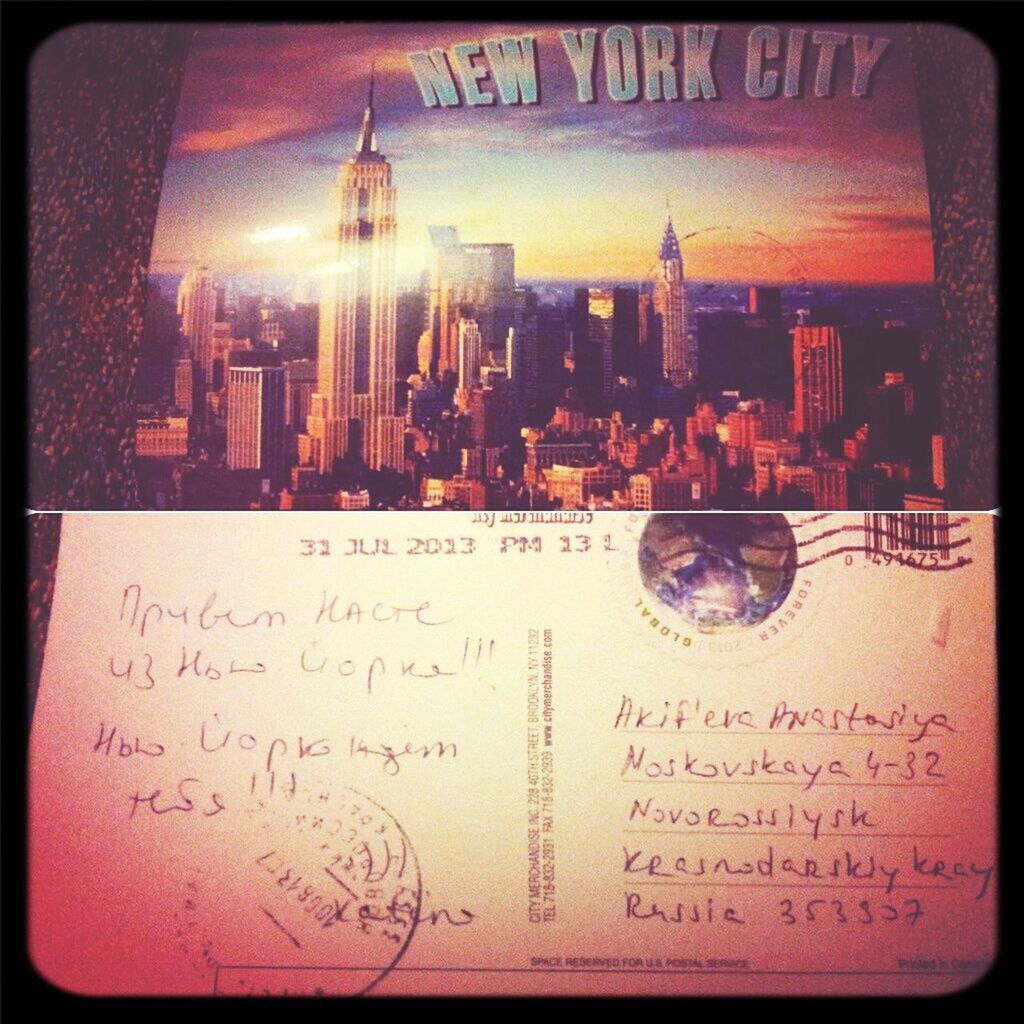 NEW YORK CITY
31 JUL 2013 PM 13 L
GLOBAL FOREVER 2013
0 491675
Привет Насте
из Нью Йорка!!!
Нью-Йорк ждет
тебя!!!
CITY MERCHANDISE INC. 228 40TH STREET, BROOKLYN, NY 11232
TEL 718-832-2931 FAX 718-832-2939 www.citymerchandise.com
Akif'eva Anastasiya
Moskovskaya 4-32
Novorossiysk
Krasnodarskiy kray
Russia 353907
SPACE RESERVED FOR U.S. POSTAL SERVICE
Printed in